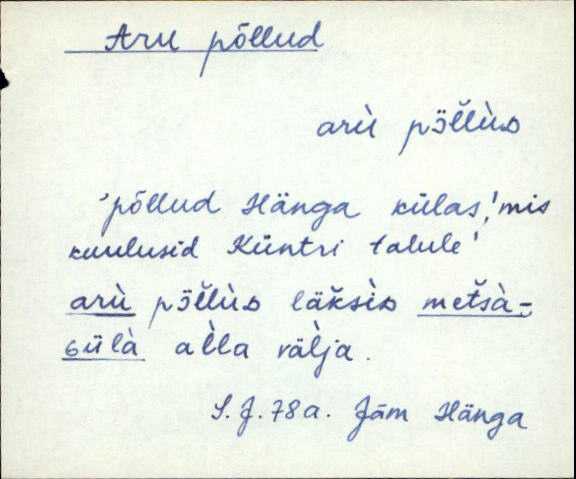 Aru põllud
arù pɔ̈l̆lùᴅ
'põllud Hänga külas, mis
kuulusid Küntri talule'
arù pɔ̈l̆lùᴅ läk̆sìᴅ met̆sà-
ɢülà al̀la vällja.
S.J. 78a. Jäm Hänga